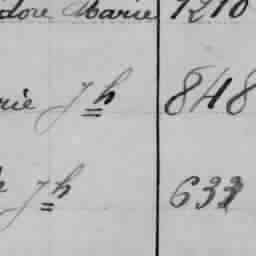 dore Marie 1210
rie Jh 848
Jh 633